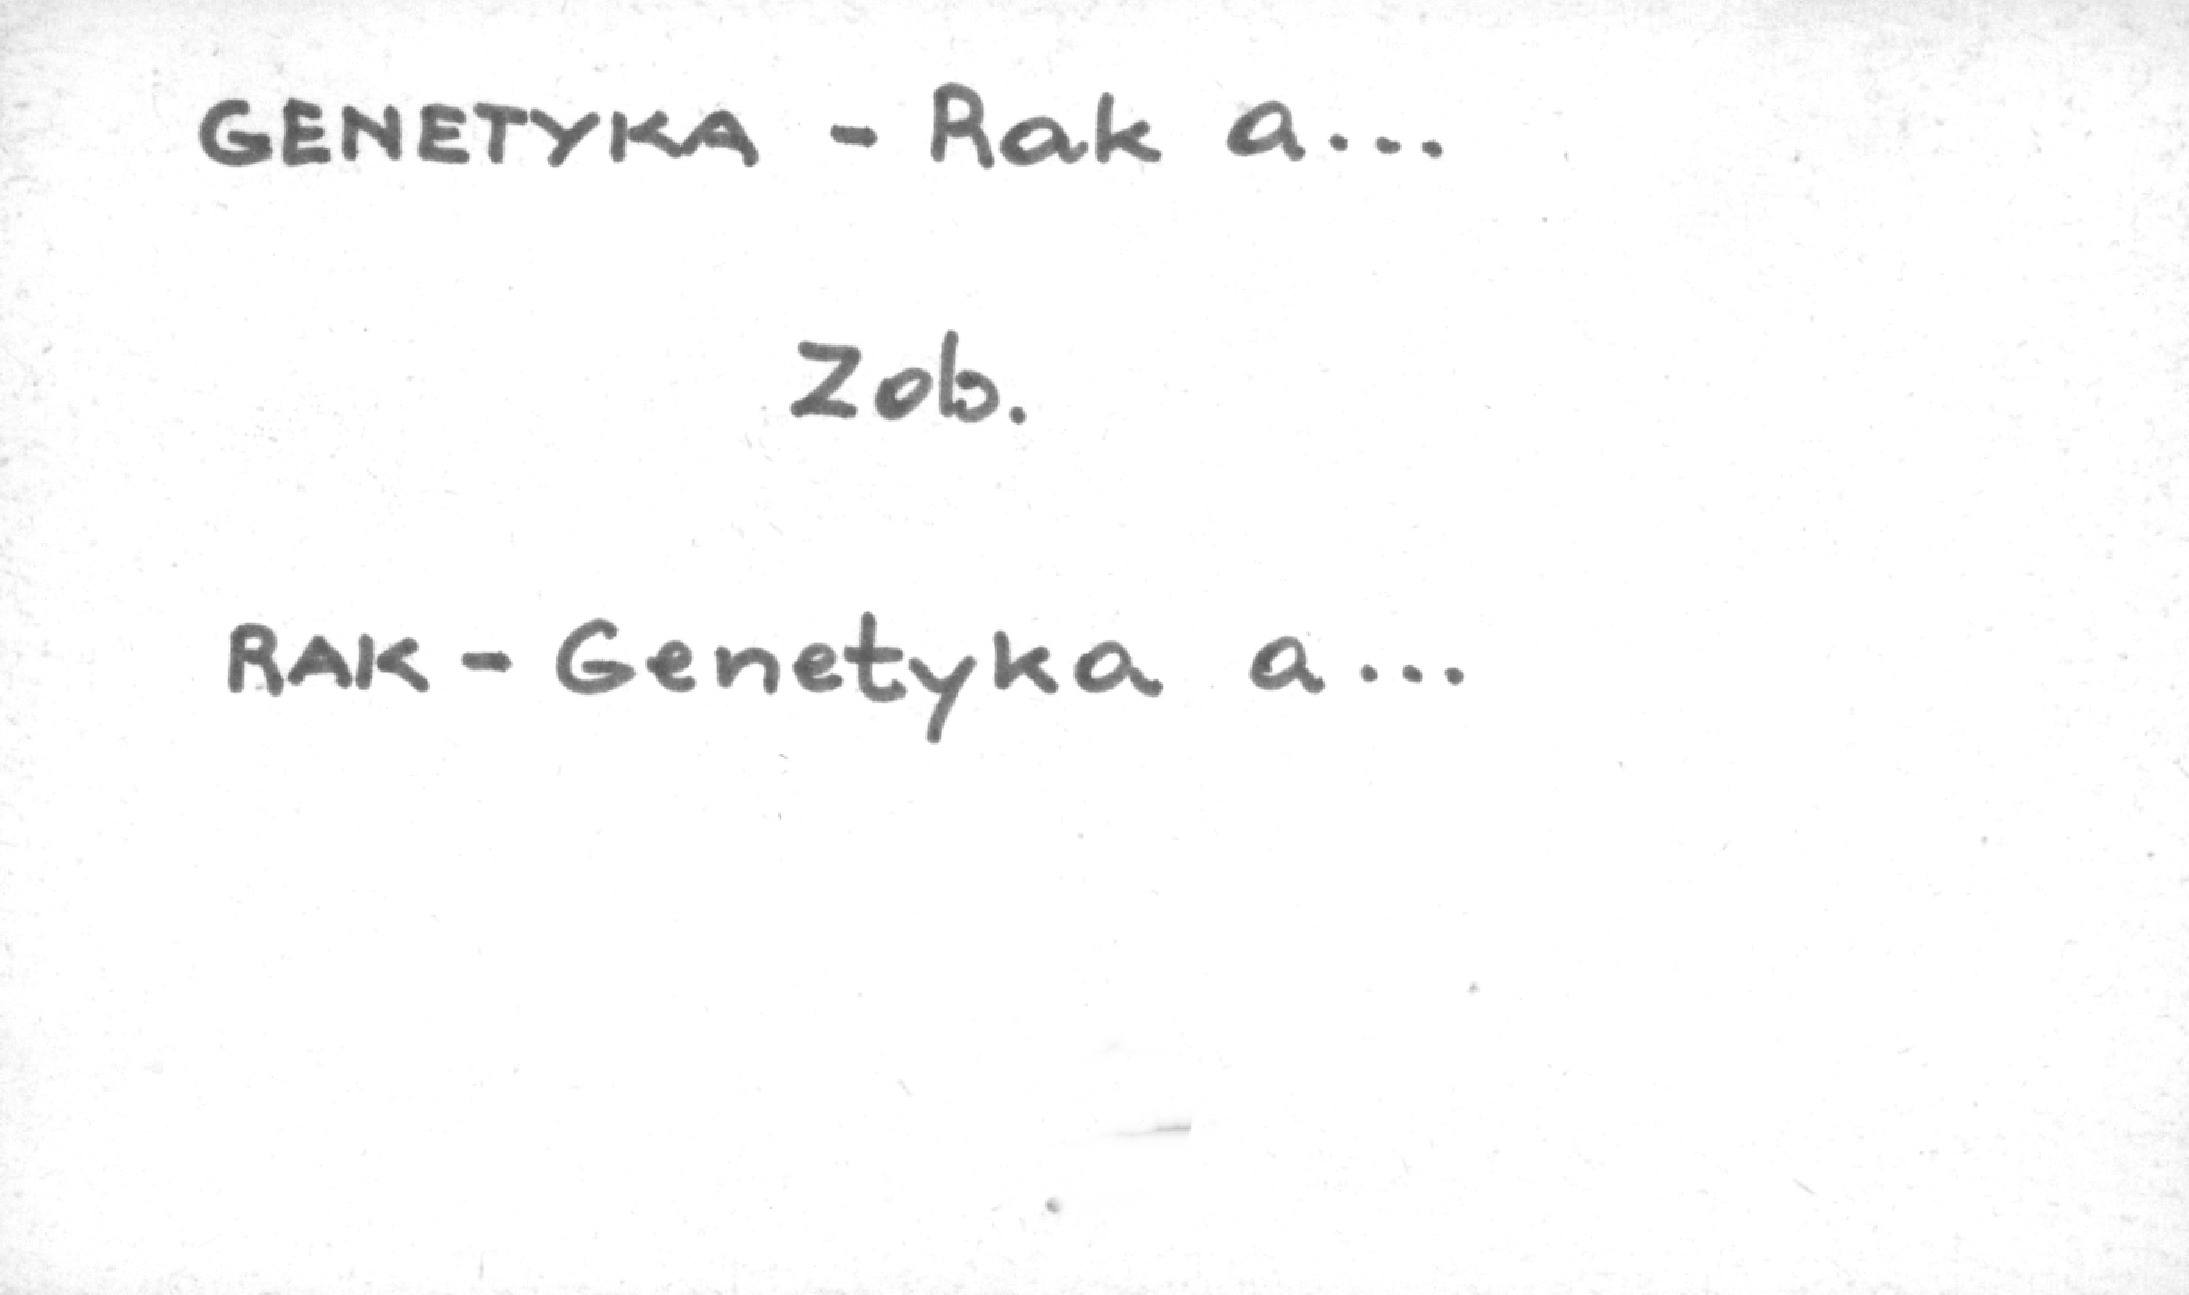 GENETYKA - Rak a...
Zob.
RAK - Genetyka a...